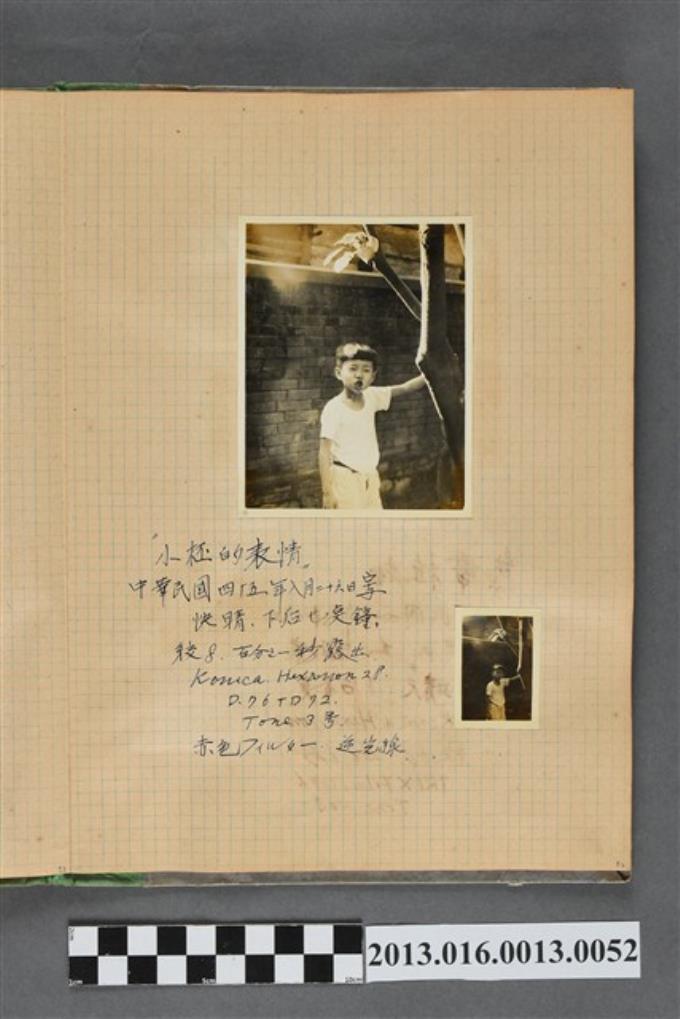 "小極的表情"
中華民國四十五年八月二十六日写
快晴、下后七矣鐘、
絞8. 百分之一秒露出
Konica. Hexanon 2.8.
D.76 + D72.
Tone 3号.
赤色フィルター. 逆光線
2013.016.0013.0052